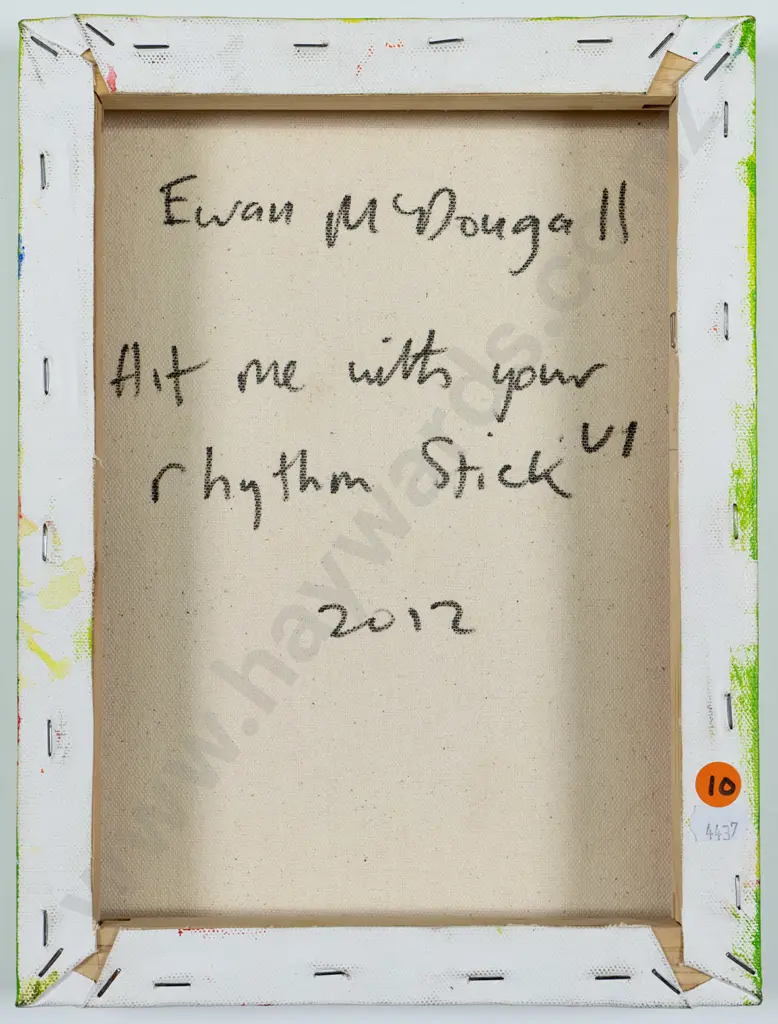 Ewan McDougall
Hit me with your
rhythm Stick VI
2012
10
4437
www.haywards.co.nz